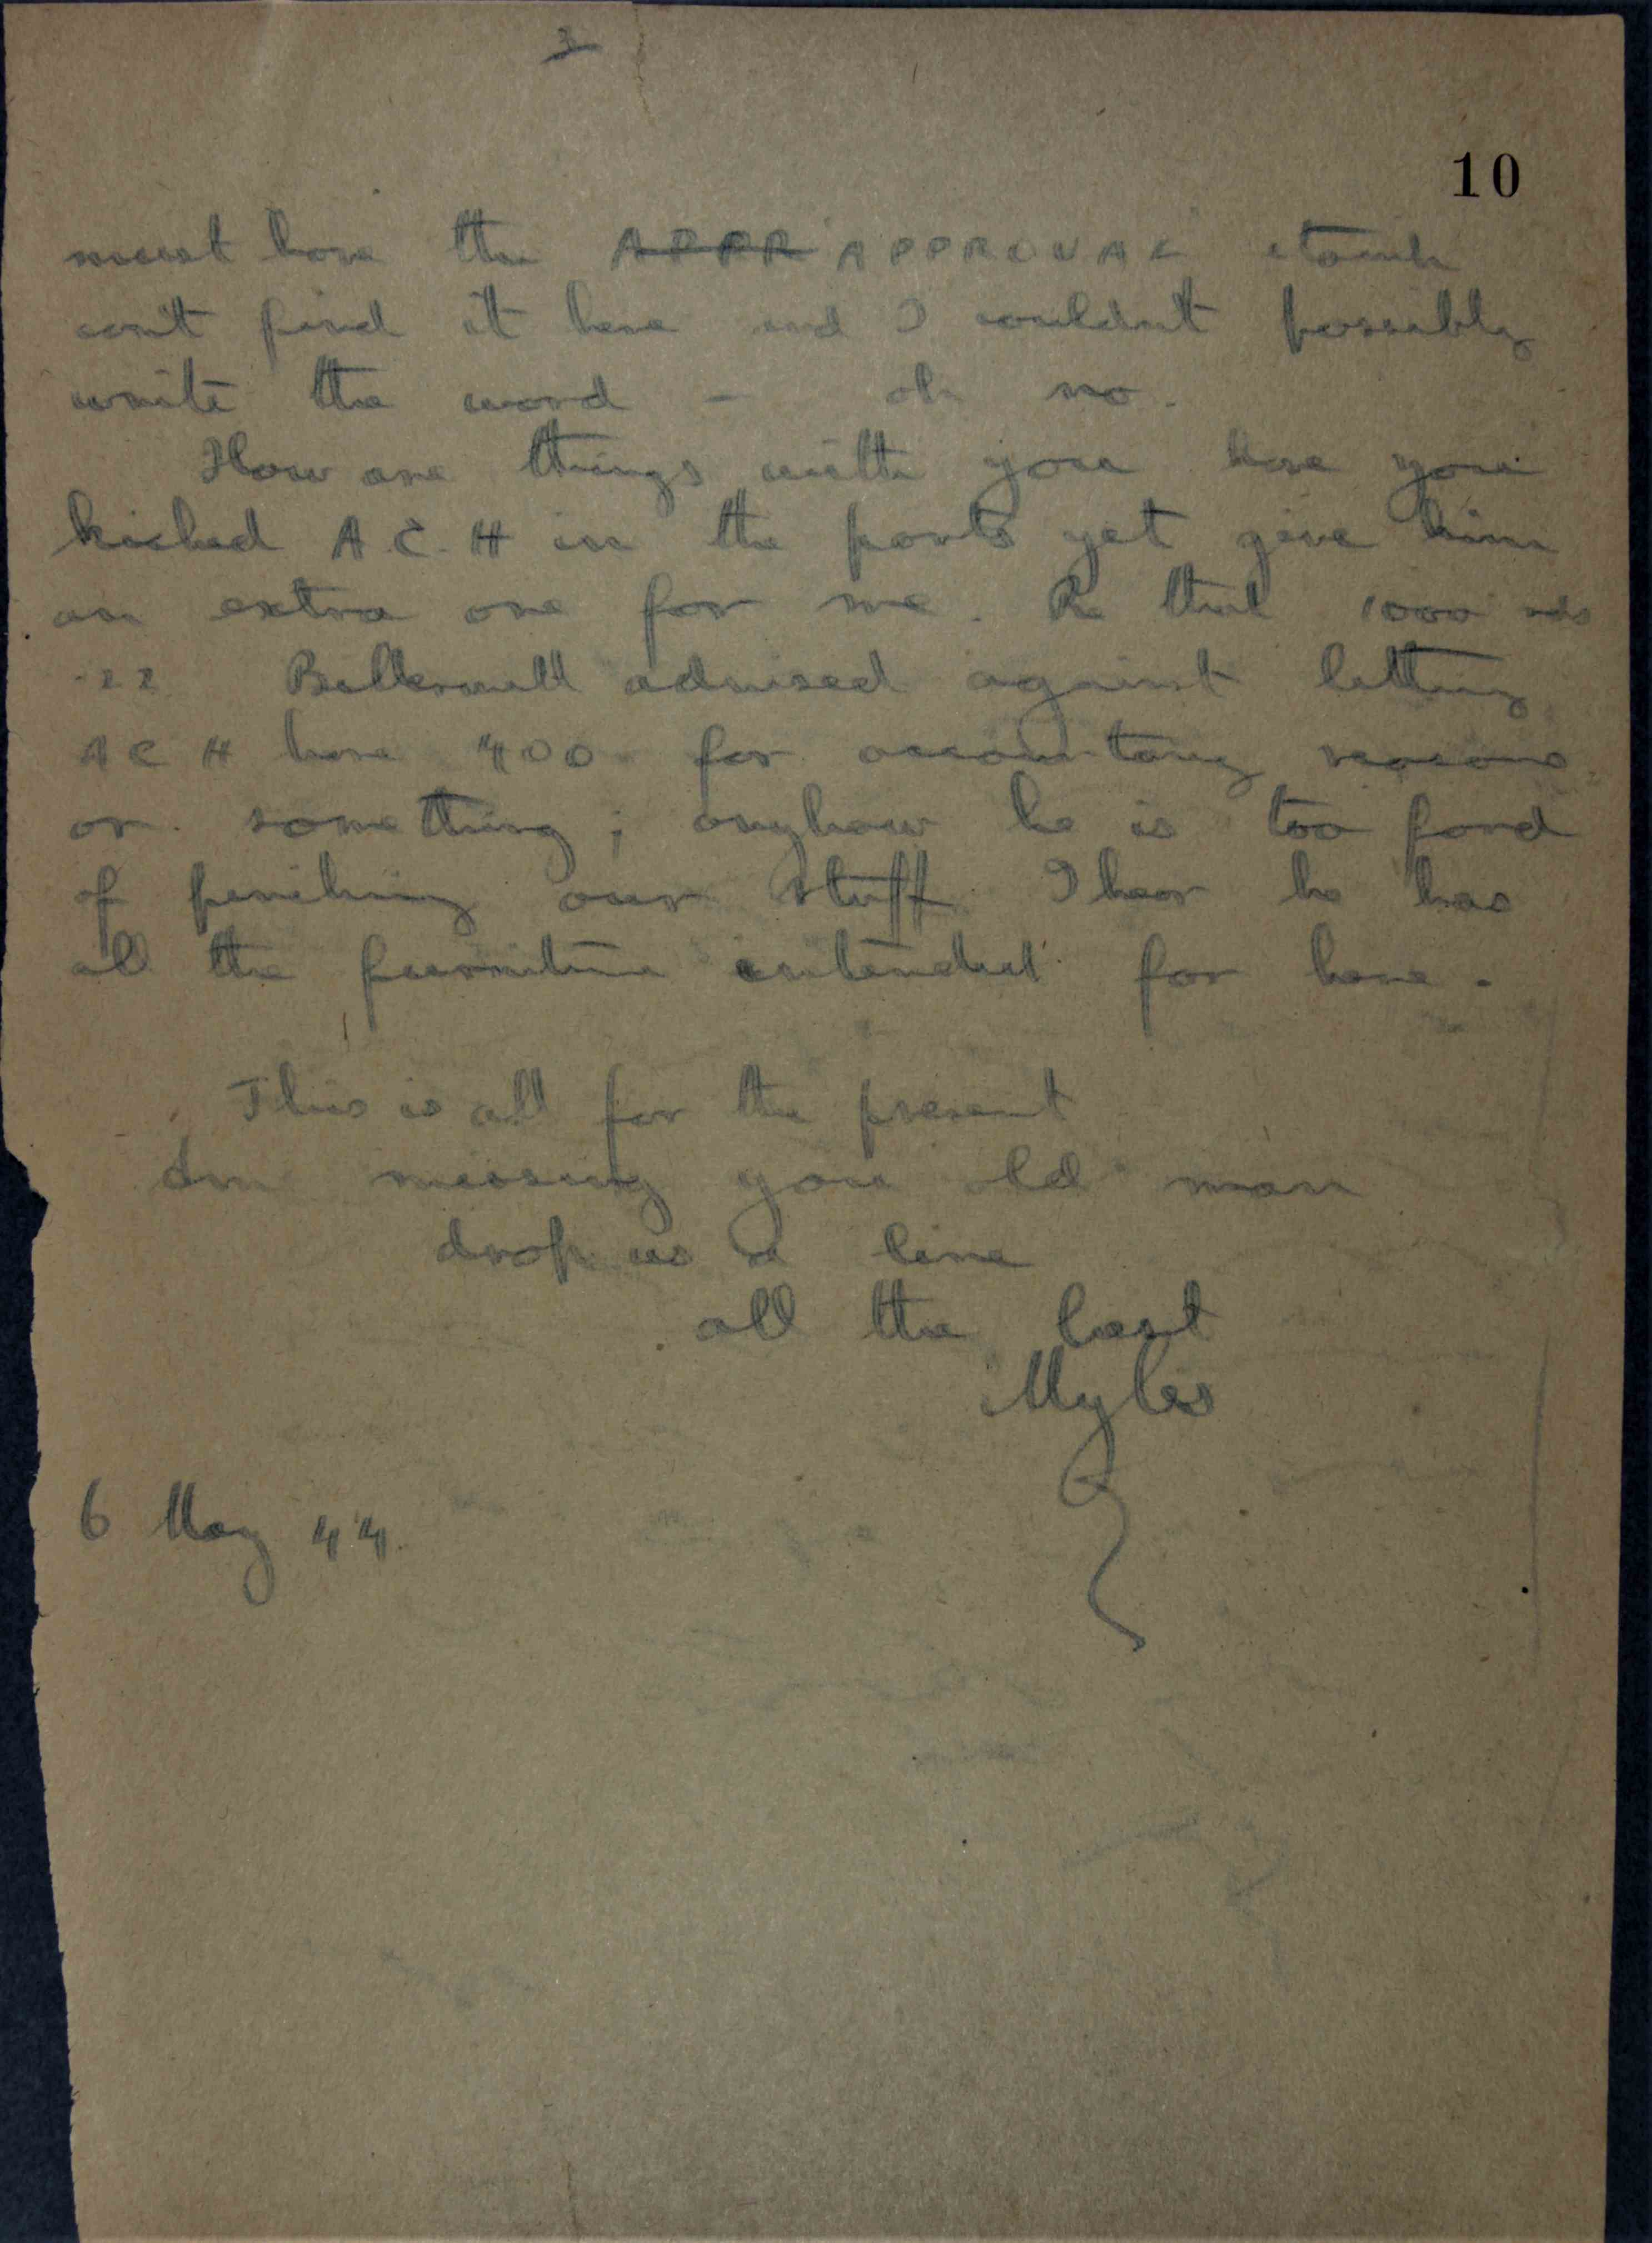 3
10
must have the APPR APPROVAL stamp
can't find it here and I couldn't possibly
write the word - oh no.
How are things with you have you
kicked A.C.H in the pants yet give him
an extra one for me. Re that 1000 rds
.22 advised against letting
A C H have 400 for accountancy reasons
or something; anyhow he is too fond
of pinching our stuff. I hear he has
all the furniture intended for here.
This is all for the present
Am missing you old man
drop us a line
all the best
Myles
6 May 44.